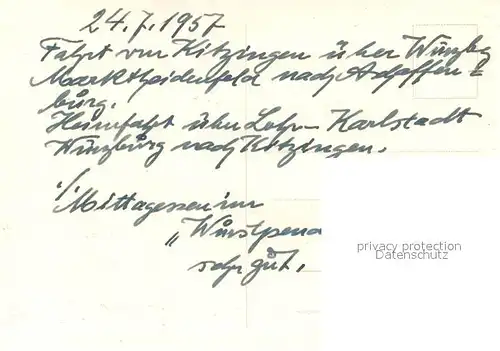 24.7.1957
Fahrt von Kitzingen über Würzbg
Marktheidenfeld nach Aschaffen=
burg.
Heimfahrt über Lohr - Karlstadt
Würzburg nach Kitzingen.
./.
Mittagessen im
„Wurstpena
sehr gut.
privacy protection
Datenschutz